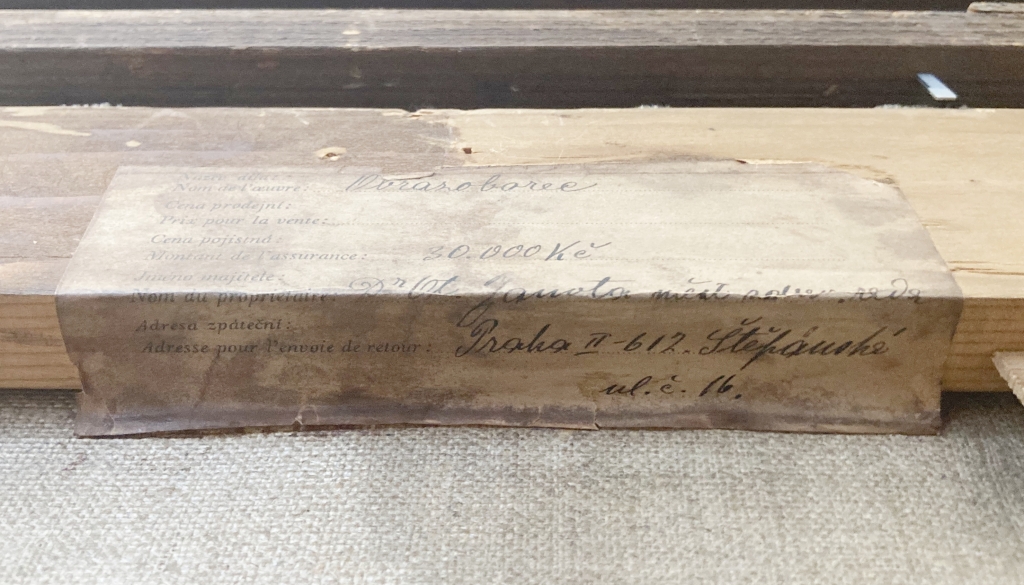 Nom de l'œuvre:
Cena prodejní:
Prix pour la vente:
Cena pojistná:
Montant de l'assurance: 30.000 Kč
Jméno majitele:
Nom du propriétaire: Dr Ot. Janota
Adresa zpáteční:
Adresse pour l'envoie de retour: Praha II-612. Štěpánská
ul. č. 16.